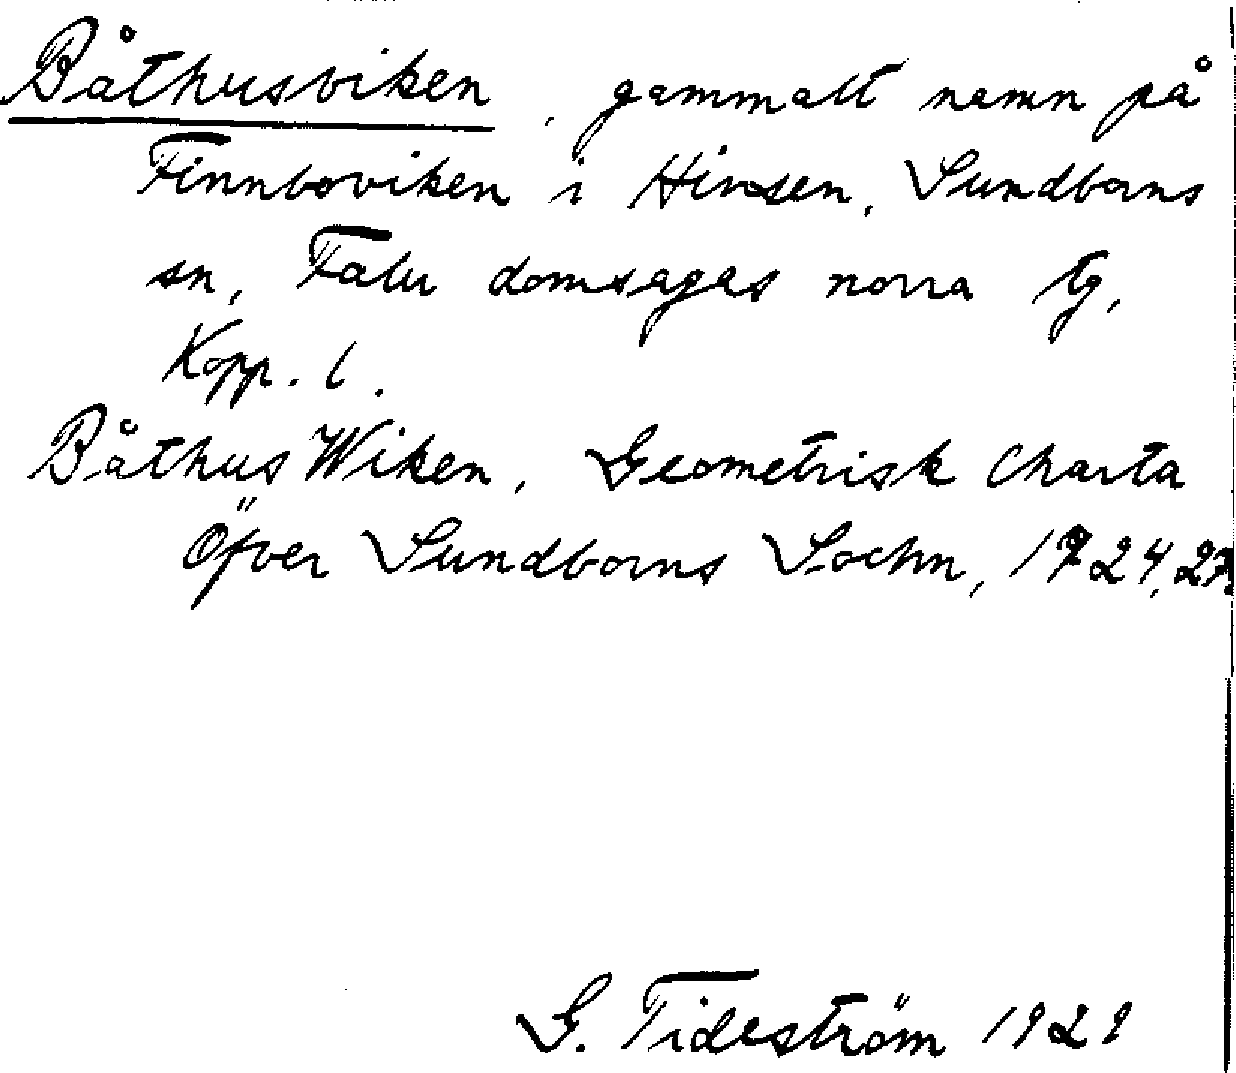 Båthusviken, gammalt namn på
Finnboviken i Hinsen, Sundborns
sn, Falu domsagas norra tg,
Kopp. l.
Båthus Wiken, Geometrisk Charta
Öfver Sundborns Sochn, 1724, 27
G. Tideström 1929